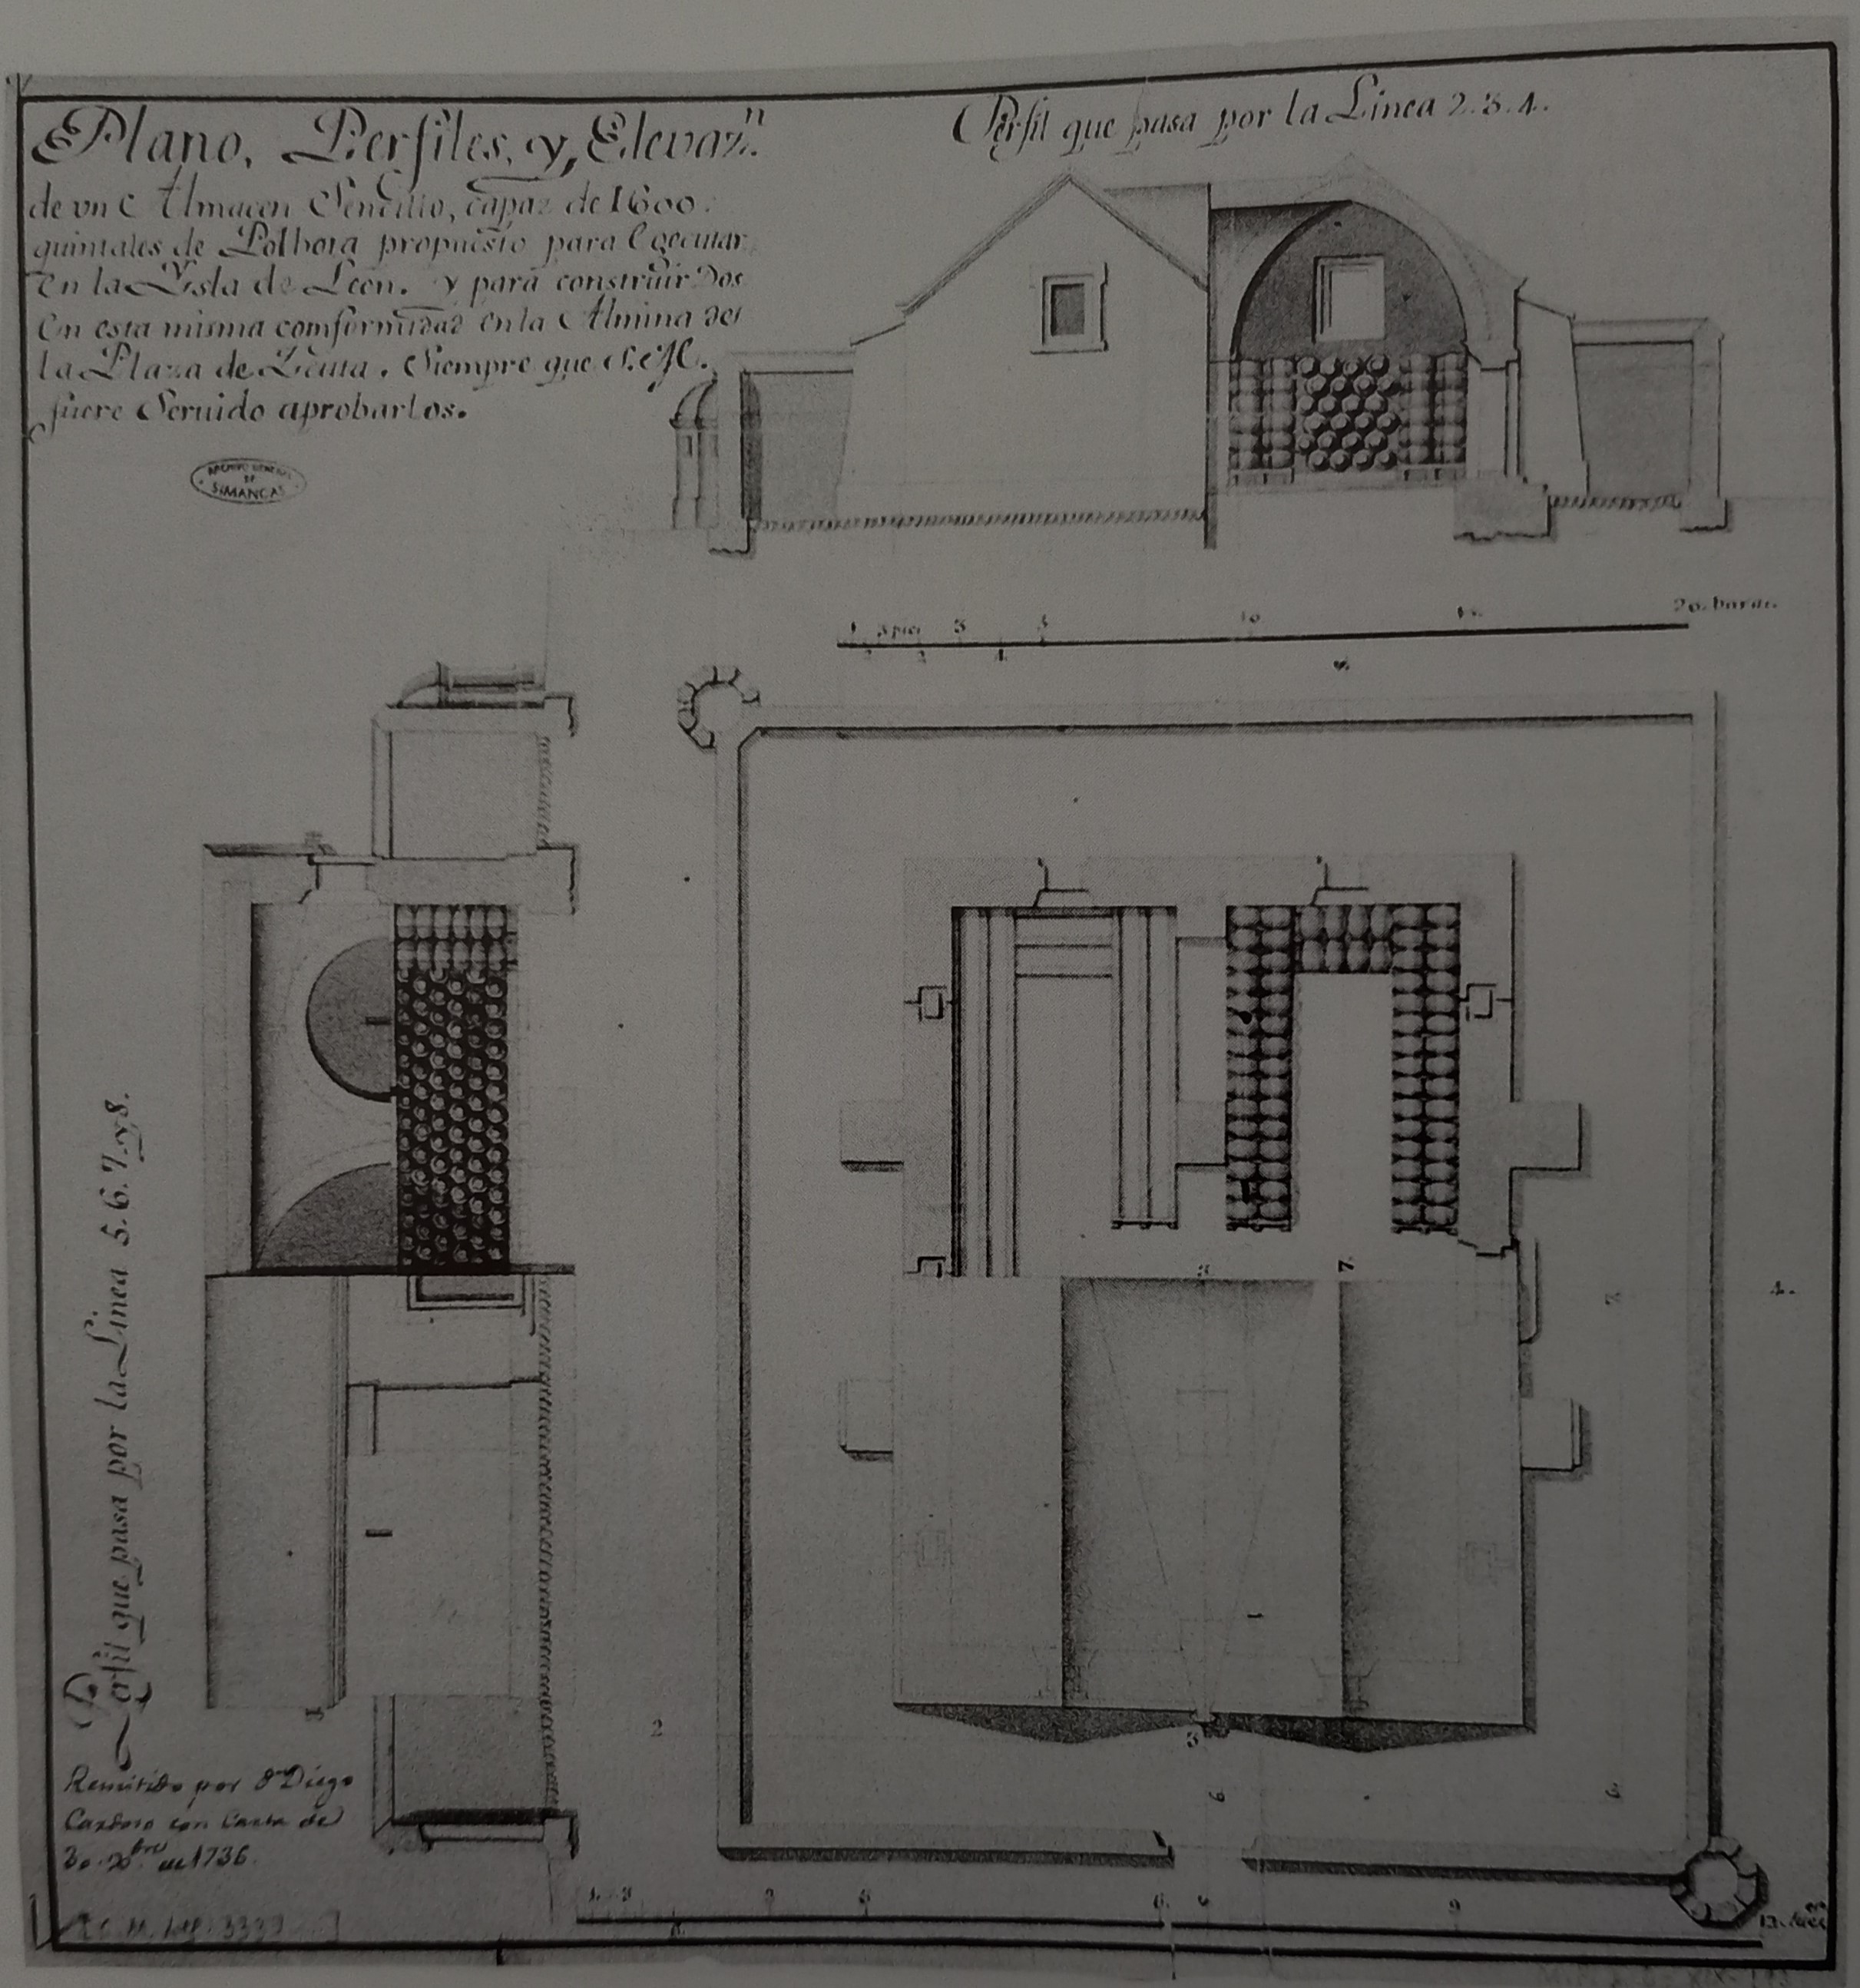 Plano, Perfiles, y, Elevazn.
de vn Almacen Sencillo, capaz de 1600
quintales de Polbora propuesto para Egecutar
en la Ysla de Leon. y para construir Dos
en esta misma comformidad en la Almina de
la Plaza de Zeuta. Siempre que S. M.
fuere Seruido aprobarlos.
ARCHIVO GENERAL
DE
SIMANCAS
Perfil que pasa por la Linea 2. 3. 4.
1 3 pies 3 5 10 20. baras.
2 4
Perfil que pasa por la Linea 5. 6. 7. y 8.
7.
4.
1
2
3
6
6.
Remitido por Dn Diego
Cardoso con Carta de
de 1736.
9